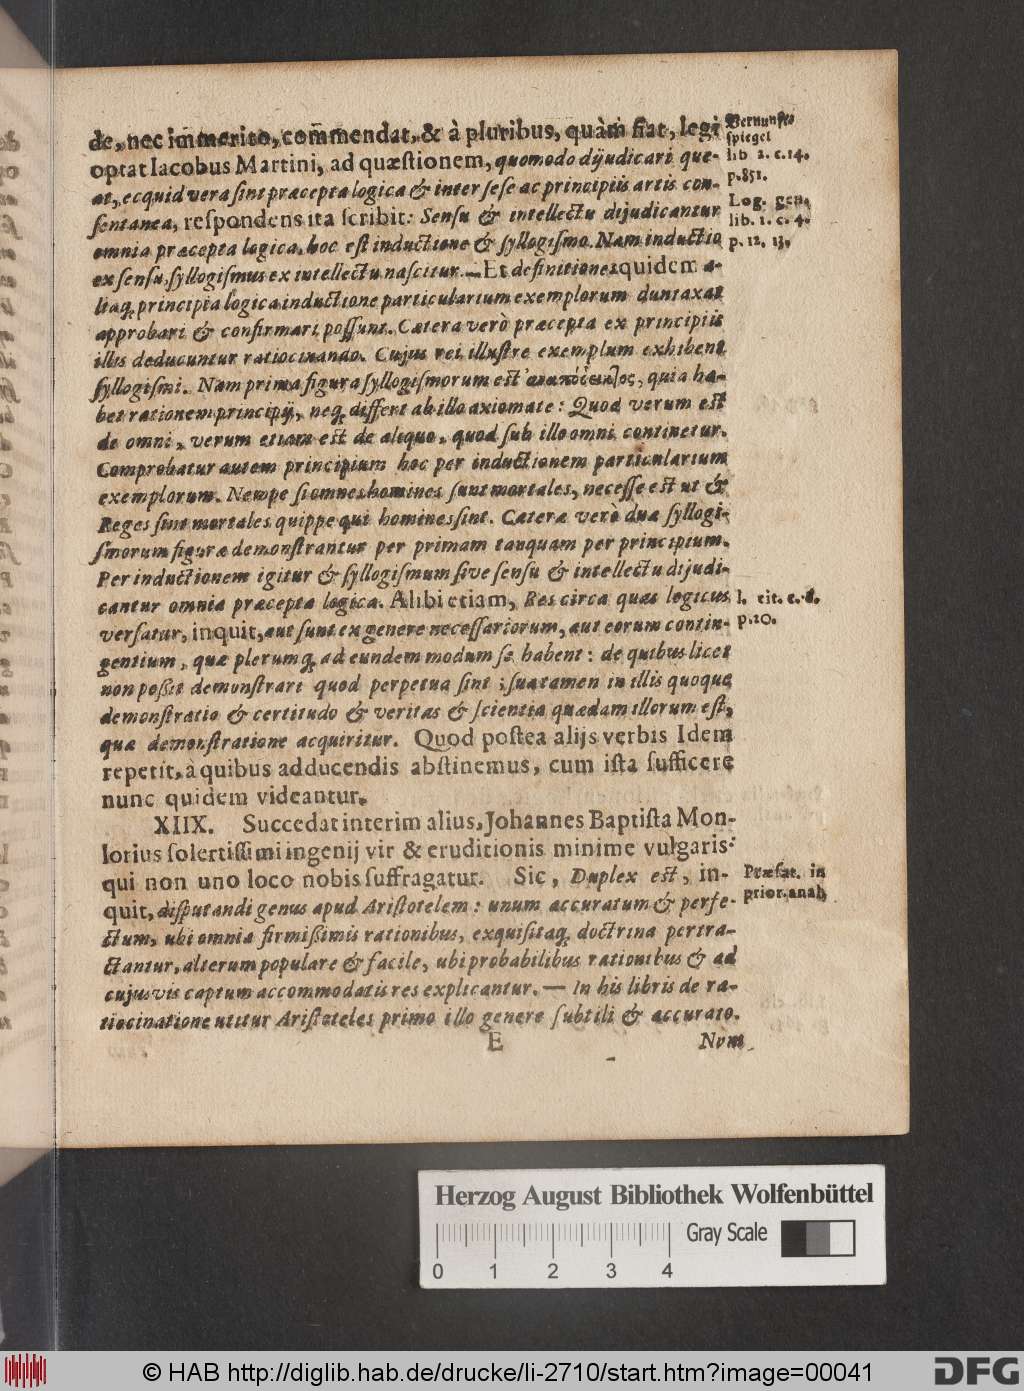 de, nec immerito, commendat, & à pluribus, quàm fiat, legi
optat Iacobus Martini, ad quæstionem, quomodo dijudicari que-
at, ecquid vera sint præcepta logica & inter sese ac principiis artis con-
sentanea, respondens ita scribit: Sensu & intellectu dijudicantur
omnia præcepta logica, hoc est inductione & syllogismo. Nam inductio
ex sensu, syllogismus ex intellectu nascitur. — Et definitiones quidem a-
liaq; principia logica inductione particularium exemplorum duntaxat
approbari & confirmari possunt. Cætera verò præcepta ex principiis
illis deducuntur ratiocinando. Cujus rei illustre exemplum exhibent
syllogismi. Nam prima figura syllogismorum est, quia ha-
bet rationem principij, neq; differt ab illo axiomate: Quod verum est
de omni, verum etiam est de aliquo, quod sub illo omni continetur.
Comprobatur autem principium hoc per inductionem particularium
exemplorum. Nempe si omnes homines sunt mortales, necesse est ut &
Reges sint mortales quippe qui homines sint. Cæteræ verò duæ syllogi-
smorum figuræ demonstrantur per primam tanquam per principium.
Per inductionem igitur & syllogismum sive sensu & intellectu dijudi-
cantur omnia præcepta logica. Alibi etiam, Res circa quas logicus
versatur, inquit, aut sunt ex genere necessariorum, aut eorum contin-
gentium, quæ plerumq; ad eundem modum se habent: de quibus licet
non poßit demonstrari quod perpetua sint; sua tamen in illis quoque
demonstratio & certitudo & veritas & scientia quædam illorum est,
quæ demonstratione acquiritur. Quod postea alijs verbis Idem
repetit, à quibus adducendis abstinemus, cum ista sufficere
nunc quidem videantur.
XIIX. Succedat interim alius, Johannes Baptista Mon-
lorius solertissimi ingenij vir & eruditionis minime vulgaris:
qui non uno loco nobis suffragatur. Sic, Duplex est, in-
quit, disputandi genus apud Aristotelem: unum accuratum & perfe-
ctum, ubi omnia firmißimis rationibus, exquisitaq; doctrina pertra-
ctantur, alterum populare & facile, ubi probabilibus rationibus & ad
cujusvis captum accommodatis res explicantur. — In his libris de ra-
tiocinatione utitur Aristoteles primo illo genere subtili & accurato.
E
Nam
Vernunfts
spiegel
lib 2. c. 14.
p. 851.
Log. gen.
lib. 1. c. 4.
p. 12. 13.
l. cit. c. d.
p. 20.
Præfat. in
prior. anal.
Herzog August Bibliothek Wolfenbüttel
Gray Scale
0 1 2 3 4
© HAB http://diglib.hab.de/drucke/li-2710/start.htm?image=00041
DFG